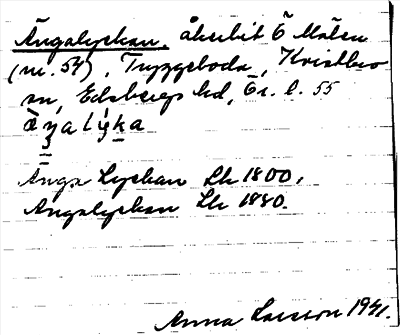 Ängalyckan, åkerbit Ö Målen
(nr. 54), Tryggeboda, Kvistbro
sn, Edsbergs hd, Ör. l. 55
Änga Lyckan Lk 1800.
Ängalyckan Lk 1880.
Anna Larsson 1941.